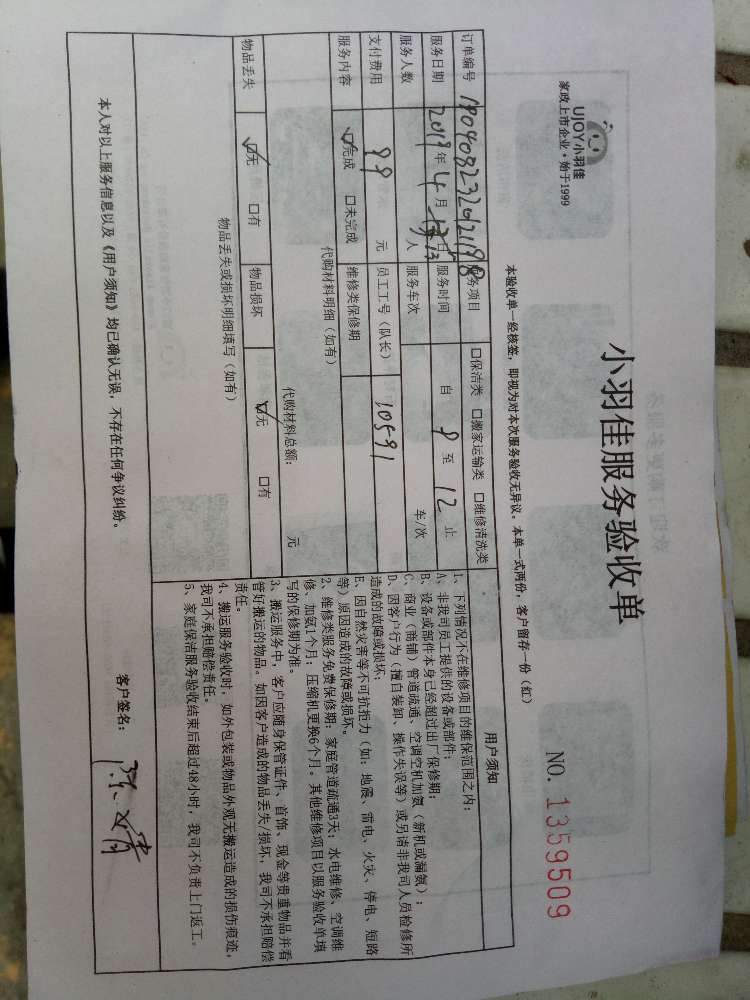 UJOY小羽佳
家政上市企业·始于1999
小羽佳服务验收单
NO. 1359509
本验收单一经核签，即视为对本次服务验收无异议。本单一式两份，客户留存一份（红）
订单编号 服务项目 □保洁类 □搬家运输类 □维修清洗类
服务日期 2019年4月13日 服务时间 自 9 至 12 止
服务人数 人 服务车次 车/次
支付费用 99 元 员工工号（队长） 10591
服务内容 ☑完成 □未完成 维修类保修期
代购材料明细（如有）
代购材料总额： 元
物品丢失 ☑无 □有 物品损坏 ☑无 □有
物品丢失或损坏明细填写（如有）
用户须知
1、下列情况不在维修项目的维保范围之内：
A、非我司员工提供的设备或部件；
B、设备或部件本身已经超过出厂保修期；
C、商业（商铺）管道疏通、空调空机加氨（新机或漏氨）；
D、因客户行为（擅自装卸、操作失误等）或另请非我司人员检修所
造成的故障或损坏；
E、因自然灾害等不可抗拒力（如：地震、雷电、火灾、停电、短路
等）原因造成的故障或损坏。
2、维修类服务免费保修期：家庭管道疏通3天；水电维修、空调维
修、加氨1个月；压缩机更换6个月。其他维修项目以服务验收单填
写的保修期为准。
3、搬运服务中，客户应随身保管证件、首饰、现金等贵重物品并看
管好搬运的物品。如因客户造成的物品丢失/损坏，我司不承担赔偿
责任。
4、搬运服务验收时，如外包装或物品外观无搬运造成的损伤痕迹，
我司不承担赔偿责任。
5、家庭保洁服务验收结束后超过48小时，我司不负责上门返工。
本人对以上服务信息以及《用户须知》均已确认无误，不存在任何争议纠纷。
客户签名：